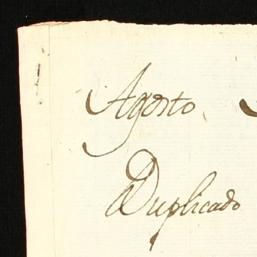 Agosto,
Duplicado